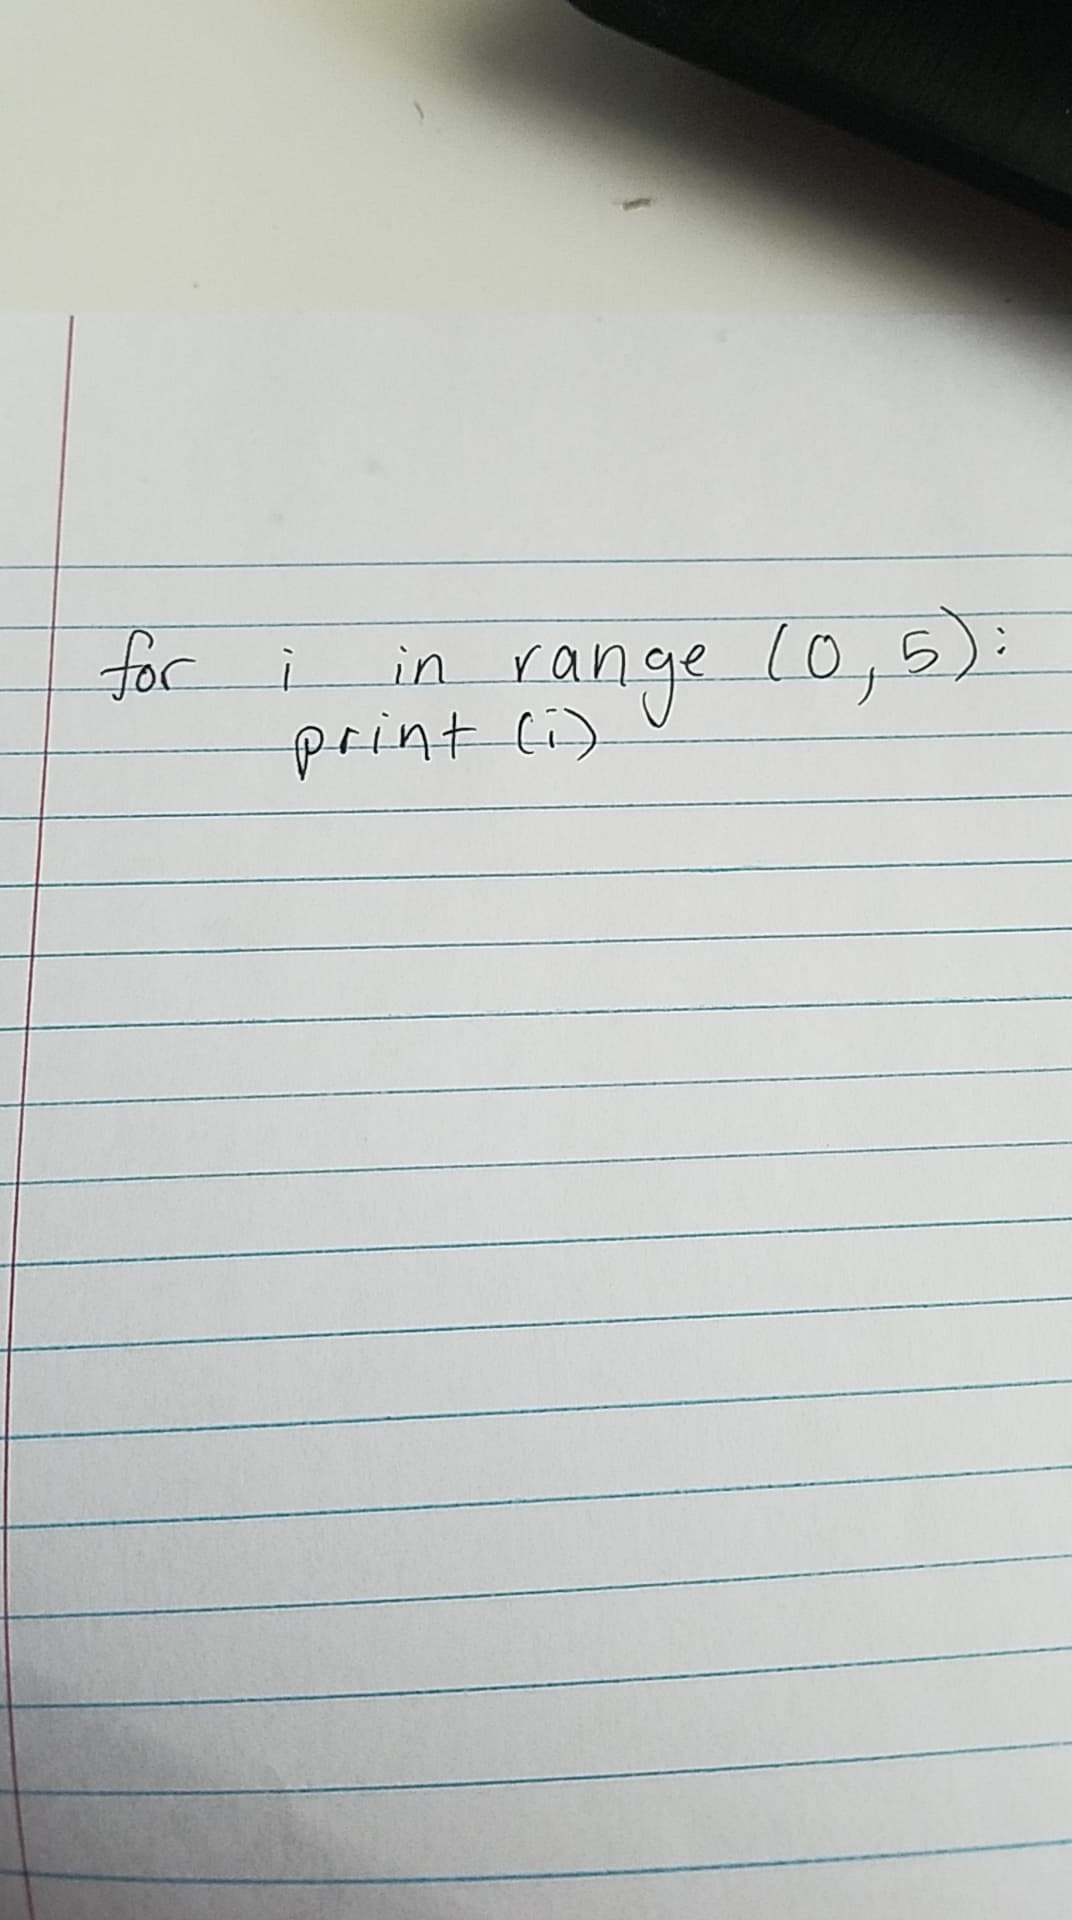 for i in range (0,5):
print (i)